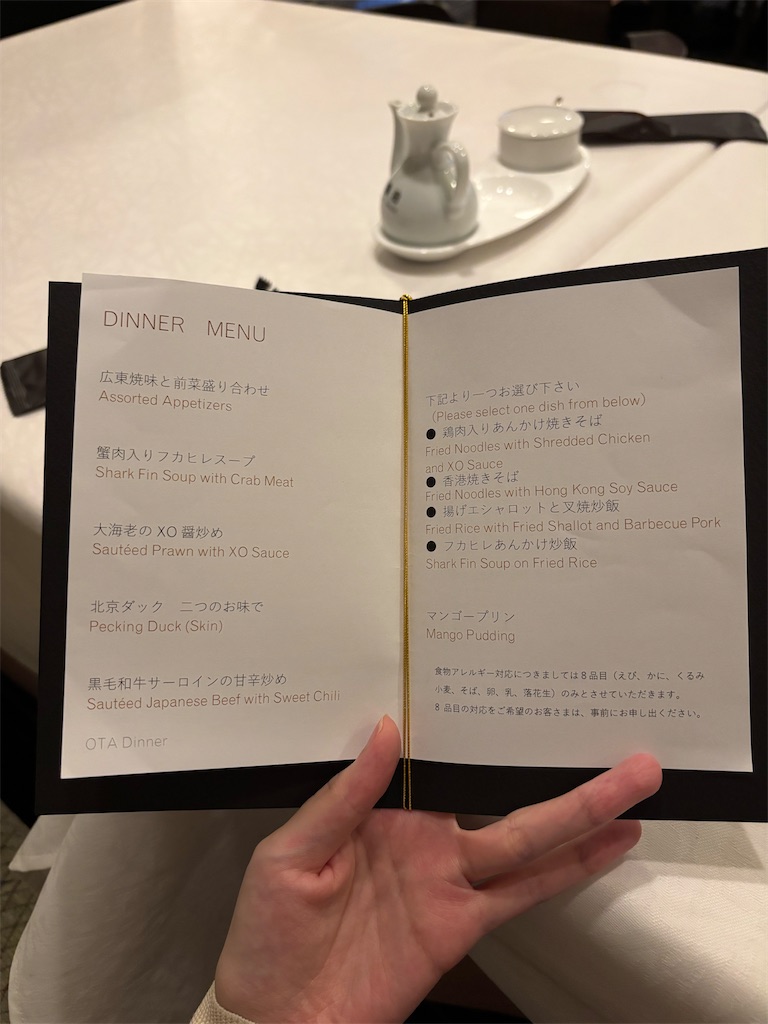 DINNER MENU
広東焼味と前菜盛り合わせ
Assorted Appetizers
蟹肉入りフカヒレスープ
Shark Fin Soup with Crab Meat
大海老のXO醤炒め
Sautéed Prawn with XO Sauce
北京ダック 二つのお味で
Pecking Duck (Skin)
黒毛和牛サーロインの甘辛炒め
Sautéed Japanese Beef with Sweet Chili
OTA Dinner
下記より一つお選び下さい
(Please select one dish from below)
● 鶏肉入りあんかけ焼きそば
Fried Noodles with Shredded Chicken
and XO Sauce
● 香港焼きそば
Fried Noodles with Hong Kong Soy Sauce
● 揚げエシャロットと叉焼炒飯
Fried Rice with Fried Shallot and Barbecue Pork
● フカヒレあんかけ炒飯
Shark Fin Soup on Fried Rice
マンゴープリン
Mango Pudding
食物アレルギー対応につきましては8品目（えび、かに、くるみ
小麦、そば、卵、乳、落花生）のみとさせていただきます。
8 品目の対応をご希望のお客さまは、事前にお申し出ください。